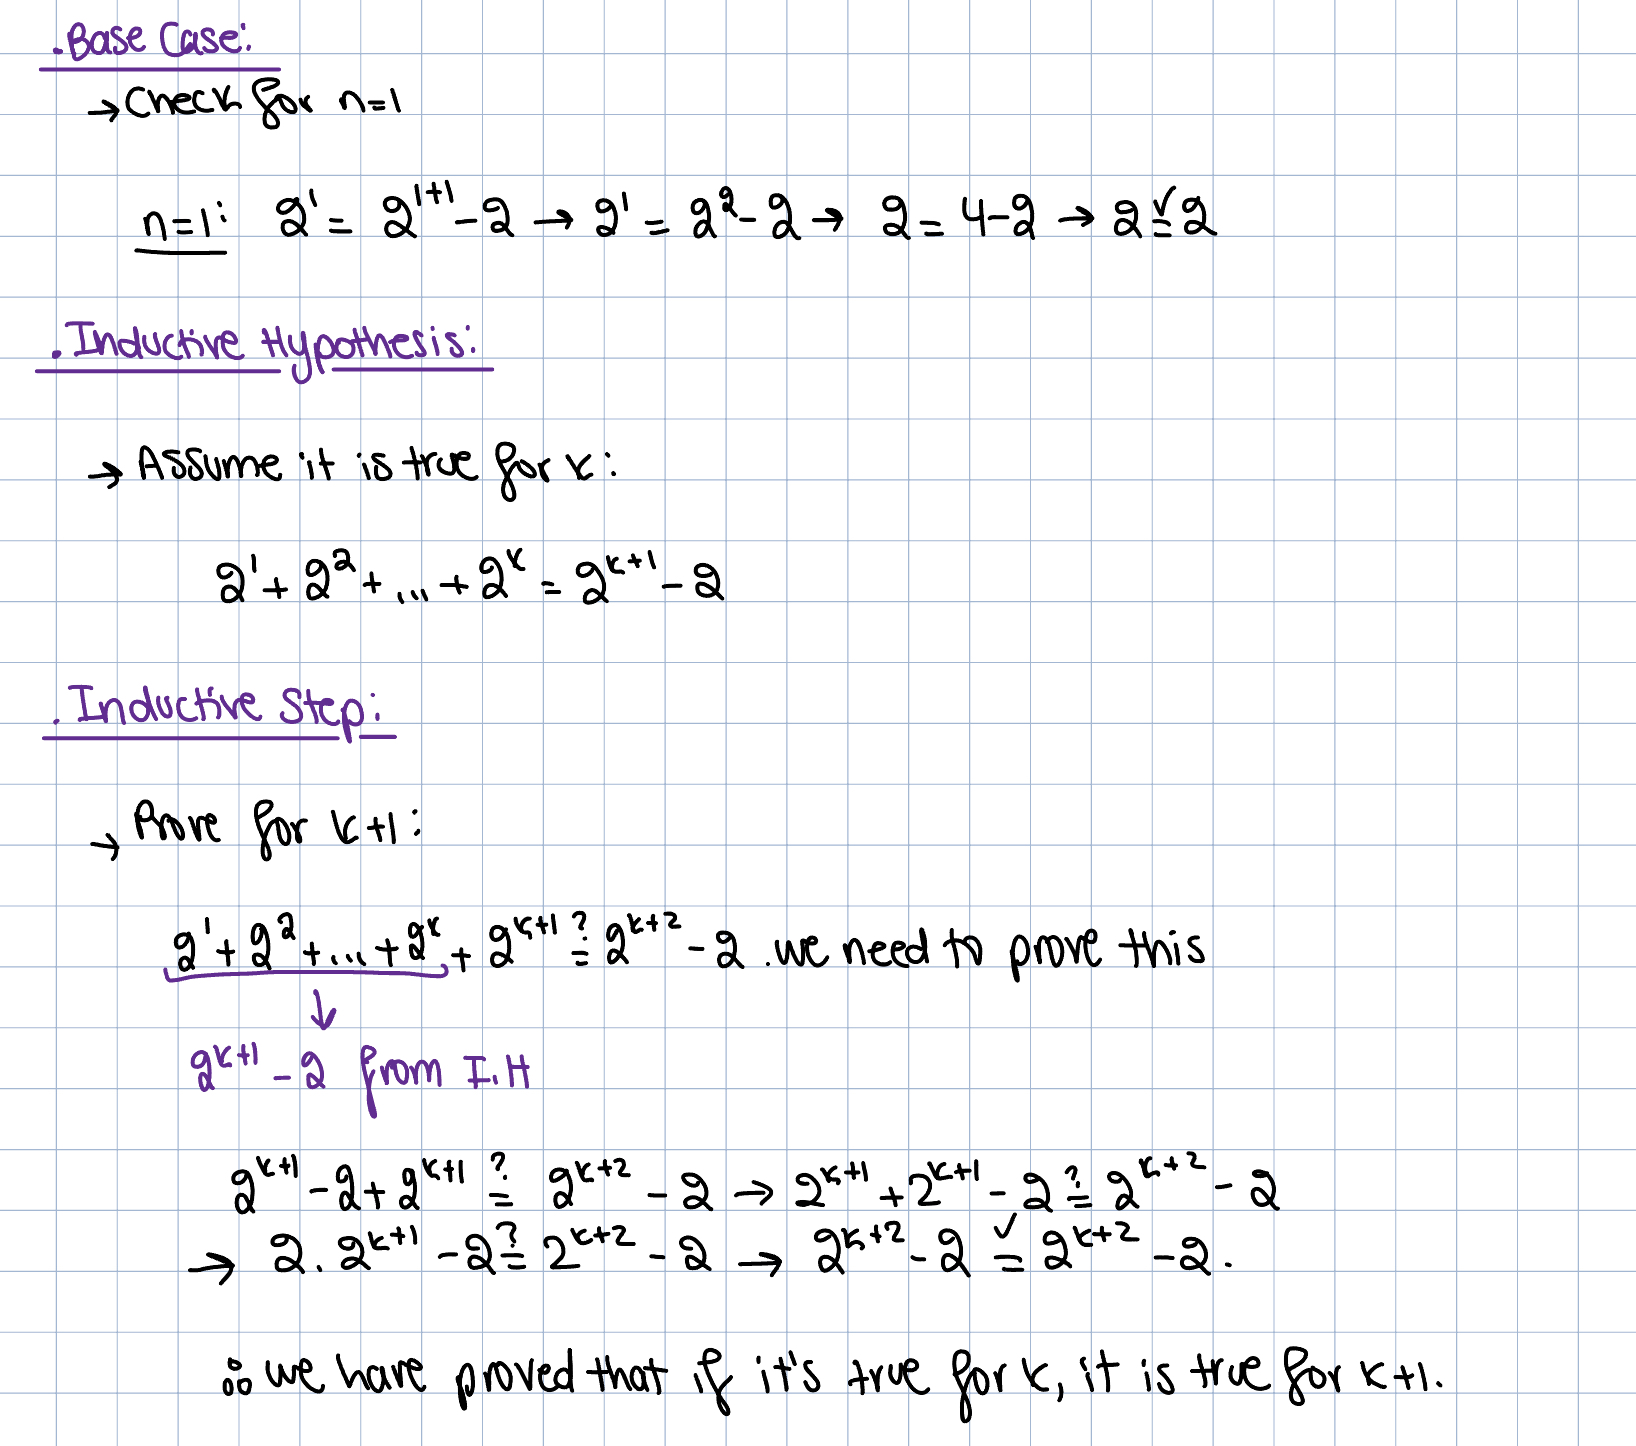 . Base Case:
→ Check for n=1
n=1: 2¹ = 2¹⁺¹ - 2 → 2¹ = 2² - 2 → 2 = 4-2 → 2 =✓ 2
. Inductive Hypothesis:
→ Assume it is true for k:
2¹ + 2² + ... + 2ᵏ = 2ᵏ⁺¹ - 2
. Inductive Step:
→ Prove for k+1:
2¹ + 2² + ... + 2ᵏ + 2ᵏ⁺¹ =? 2ᵏ⁺² - 2 . we need to prove this
↓
2ᵏ⁺¹ - 2 from I.H
2ᵏ⁺¹ - 2 + 2ᵏ⁺¹ =? 2ᵏ⁺² - 2 → 2ᵏ⁺¹ + 2ᵏ⁺¹ - 2 =? 2ᵏ⁺² - 2
→ 2 . 2ᵏ⁺¹ - 2 =? 2ᵏ⁺² - 2 → 2ᵏ⁺² - 2 =✓ 2ᵏ⁺² - 2.
∴ we have proved that if it's true for k, it is true for k+1.